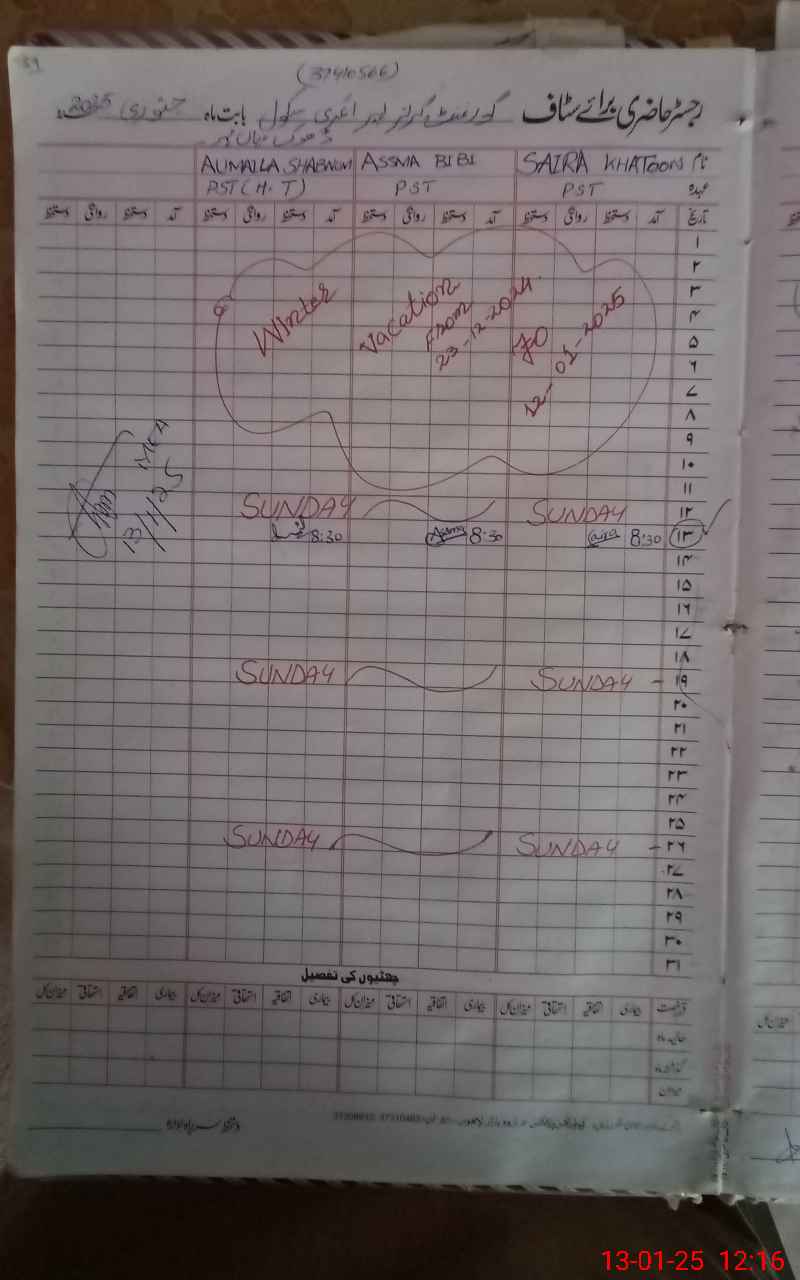 39
(37410566)
رجسٹر حاضری برائے سٹاف گورنمنٹ گرلز پرائمری سکول بابت ماہ جنوری 2025
ڈھوک میاں
نام SAIRA KHATOON ASSMA BIBI AUMAILA SHABNUM
عہدہ PST PST PST (H.T)
تاریخ آمد دستخط روانگی دستخط آمد دستخط روانگی دستخط آمد دستخط روانگی دستخط آمد دستخط روانگی دستخط
۱
۲
۳
۴
۵
۶
۷
۸
۹
۱۰
۱۱
Winter Vacation From 23-12-2024 To 12-01-2025
۱۲ SUNDAY SUNDAY
۱۳ 8:30 Saira 8:30 Assma 8:30
13/1/25
۱۴
۱۵
۱۶
۱۷
۱۸
۱۹ SUNDAY SUNDAY
۲۰
۲۱
۲۲
۲۳
۲۴
۲۵
۲۶ SUNDAY SUNDAY
۲۷
۲۸
۲۹
۳۰
۳۱
چھٹیوں کی تفصیل
بیماری اتفاقیہ استحقاقی میزان کل بیماری اتفاقیہ استحقاقی میزان کل بیماری اتفاقیہ استحقاقی میزان کل بیماری اتفاقیہ استحقاقی میزان کل
حالیہ ماہ
گذشتہ ماہ
میزان
دستخط سربراہ ادارہ
13-01-25 12:16